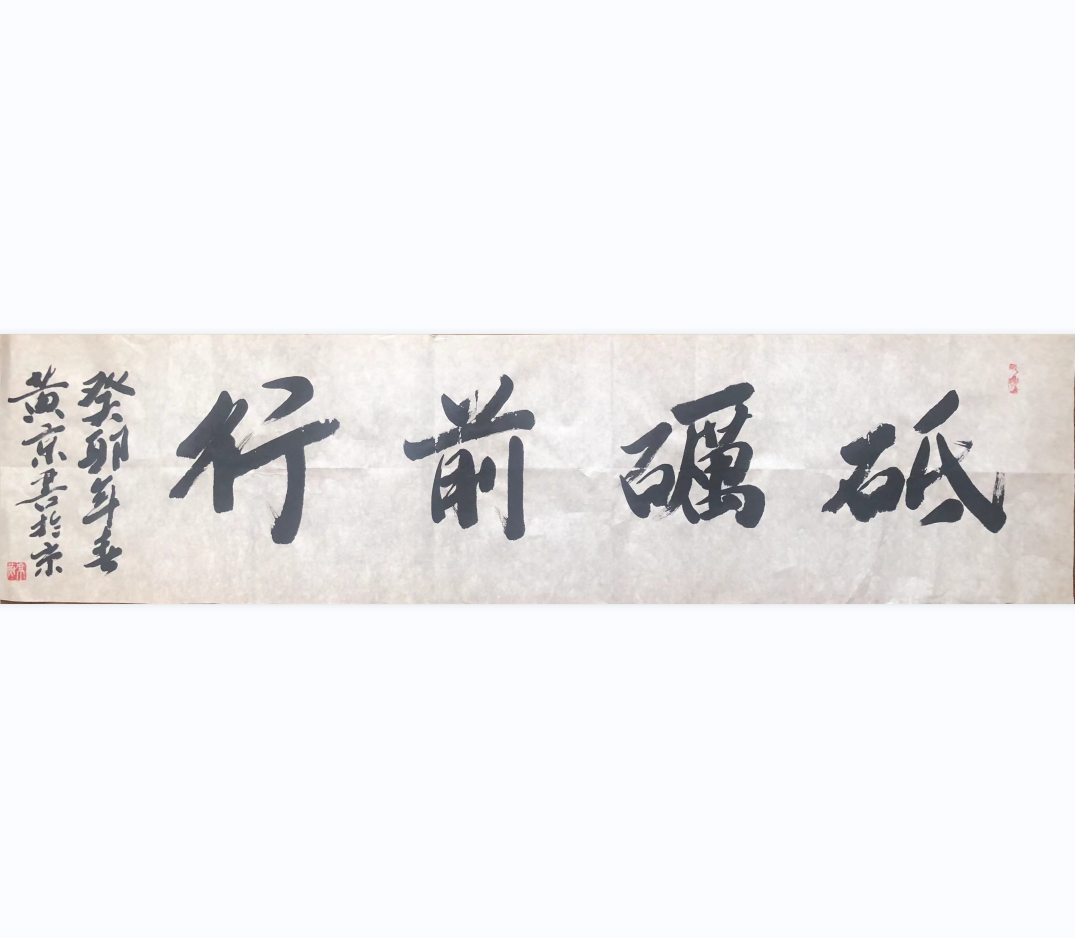 砥礪前行
癸卯年春
黄京書於京